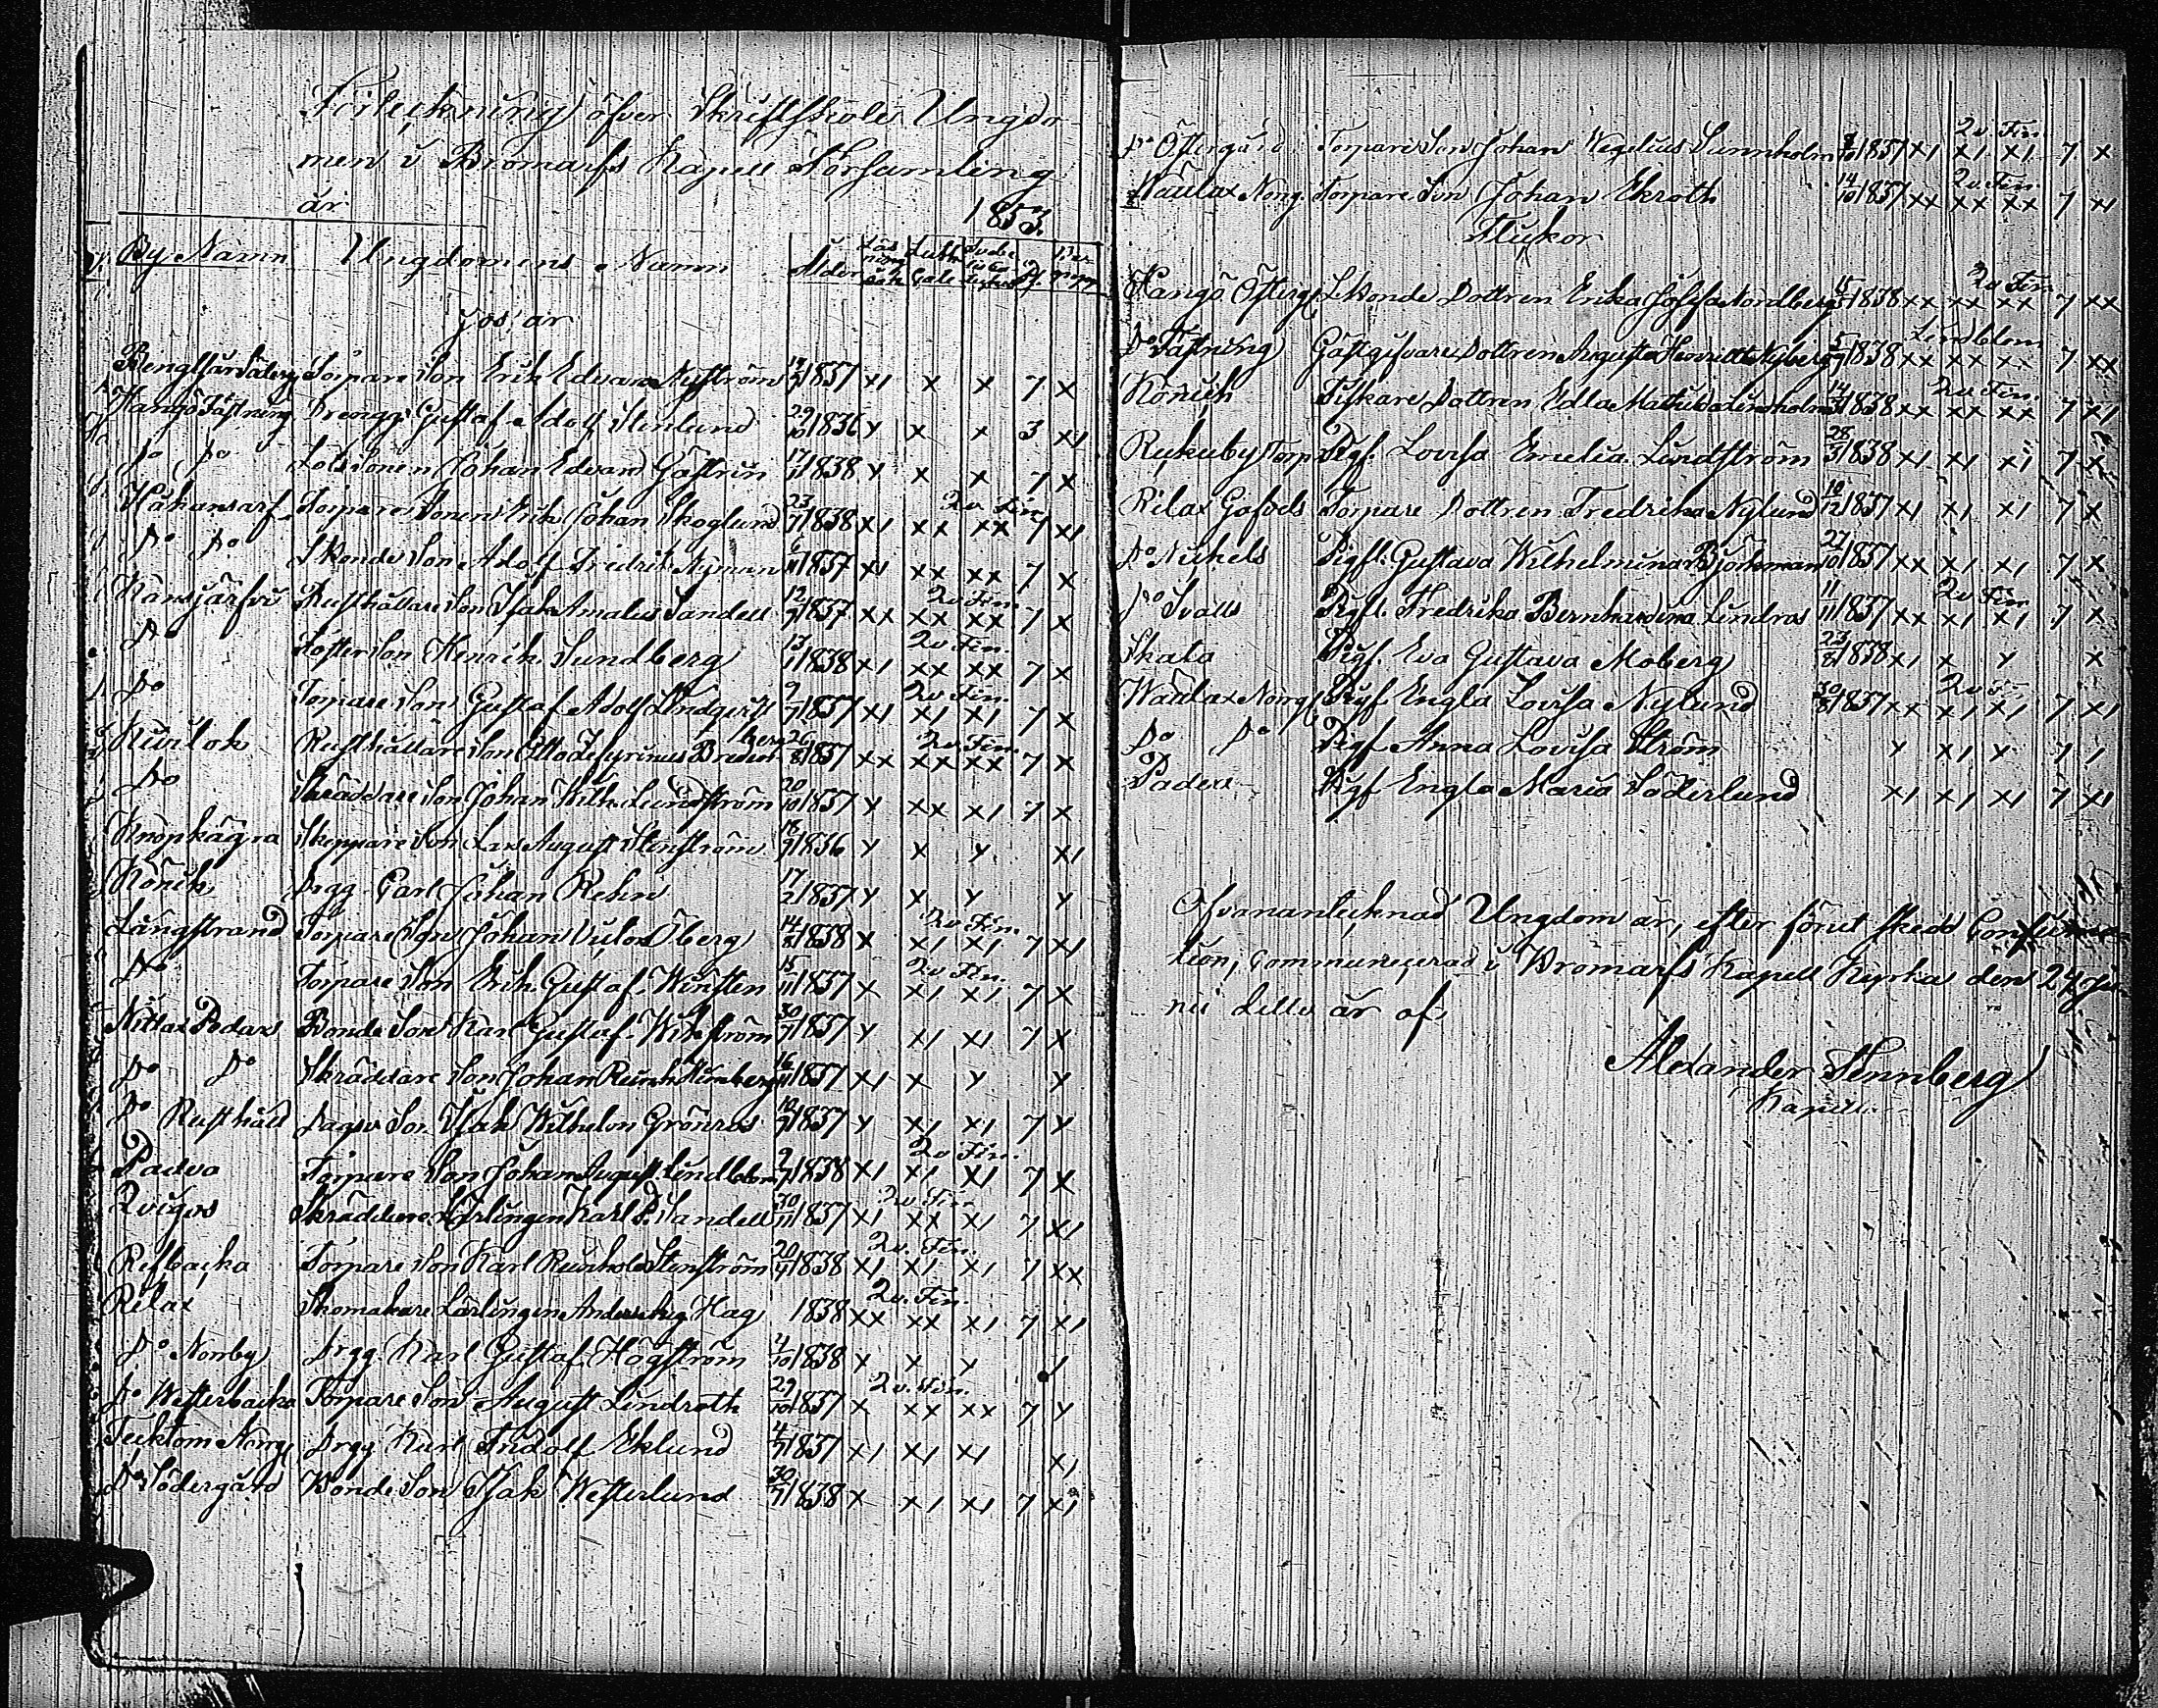 Förteckning öfver Skriftskole Ungdo-
men i Bromarfs Kapell Församling
år 1853.
By Namn Ungdomens Namn Ålder
Gossar
Bengtsår Säteri Torpare Son Erik Edvard Nyström 1837 x1 x x 7 x
Hangö Fästning Drengg. Gustaf Adolf Stenlund 29/10 1836 x x x 3 x1
Do Do Lots Sonen Johan Edvard Gästrin 17/11 1838 x x x 7 x
2 v. Fin.
Håkansarf Torpare Sonen Erik Johan Skoglund 23/7 1838 x1 xx xx 7 x1
Do Do Skonde Son Adolf Fredrik Nyman 6/11 1837 x1 xx xx 7 x
2 v. Fin.
Kansjärfvi Rusthållare Son Isak Amatus Sandell 12/9 1837 xx xx xx 7 x
2 v. Fin.
Do Foster Son Henrik Sundberg 13/1 1838 x1 xx xx 7 x
2 v. Fin.
Do Torpare Son Gustaf Adolf Lindqvist 9/7 1837 x1 x1 x1 7 x
2 v. Fin.
Kuilok Rusthållare Son Otto Zefyrinus Bredenberg 26/8 1837 xx xx xx 7 x
Do Skräddare Son Johan Wilh. Lundström 20/10 1837 x xx x1 7 x
Knopkägra Skeppare Son Lars August Stenström 18/9 1836 x x x x1
Könik Drgg. Carl Johan Rehn 17/2 1837 x x x x
2 v. Fin.
Långstrand Torpare Son Johan Victor Öberg 14/8 1838 x x1 x1 7 x1
2 v. Fin.
Do Torpare Son Erik Gustaf Winsten 15/11 1837 x x1 x1 7 x
Nitlax Bonde Son Karl Gustaf Wikström 30/7 1837 x x1 x1 7 x
Do Do Skräddare Son Johan Reinh. 16/11 1837 x1 x x x
Do Rusthåll Dagsv. Son Isak Wilhelm Grönroos 10/9 1837 x x1 x1 7 x
2 v. Fin.
Padva Torpare Son Johan August Lindblom 9/7 1838 x1 x1 x1 7 x
2 v. Fin.
Qvigos Skräddare Lärlingen Karl Sandell 30/11 1837 x1 xx x1 7 x1
2 v. Fin.
Refbacka Torpare Son Karl Reinhold Stenström 20/4 1838 x1 x1 x1 7 xx
2 v. Fin.
Rilax Skomakare Lärlingen Anders Aug. Hag 1838 xx xx x1 7 x1
Do Norrby Drgg. Karl Gustaf Högström 4/10 1838 x x x 1
2 v. Fin.
Do Westerbacka Torpare Son August Lindroth 29/10 1837 x xx xx 7 x
Tecktom Norrg. Drgg. Karl Fridolf Eklund 4/7 1837 x1 x1 x1 x1
Do Södergård Bonde Son Isak Westerlund 30/7 1838 x x1 x1 7 x1
2 v. Fin.
Do Östergård Torpare Son Johan Wegelius Sunnholm 1837 x1 x1 x1 7 x
2 v. Fin.
Waulax Norrg. Torpare Son Johan Ekroth 14/10 1837 xx xx xx 7 x1
Flickor
2 v. Fin.
Hangö Österg. Skonde Dottren Erika Josefa Nordberg 1838 xx xx xx 7 xx
Lindblom
Do Fästning Gästgifvare Dottren Augusta Henriette Nyberg 1838 xx xx x 7 xx
2 v. Fin.
Könik Fiskare Dottren Edla Mathilda Lindholm 14/3 1838 xx xx xx 7 x1
Rukuby Torp Pigf. Lovisa Emelia Lindström 28/3 1838 x1 x1 x1 7 x
Rilax Gafvels Torpare Dottren Fredrika Nylund 10/12 1837 x1 x1 x1 7 x
Do Nickels Pigfl. Gustava Wilhelmina Björkman 27/10 1837 xx x1 x1 7 x
2 v. Fin.
Do Svälls Pigfl. Fredrika Bernhardina Lindros 11/11 1837 xx x1 x1 7 x
Skata Pigf. Eva Gustava Moberg 23/8 1838 x1 x x x
2 v. Fin.
Waulax Norrg. Pigf. Engla Lovisa Nylund 30/8 1837 xx x1 x1 7 x1
Do Do Pigf. Anna Lovisa Ström x x1 x 7 1
Padera Pigf. Engla Maria Söderlund x1 x1 x1 7 x1
Ofvanantecknad Ungdom är, efter förut skedd Confirma-
tion, Communicerad i Bromarfs Kapell Kyrka den 24 Ju-
nii detta år af
Alexander Stennberg
Kapell.